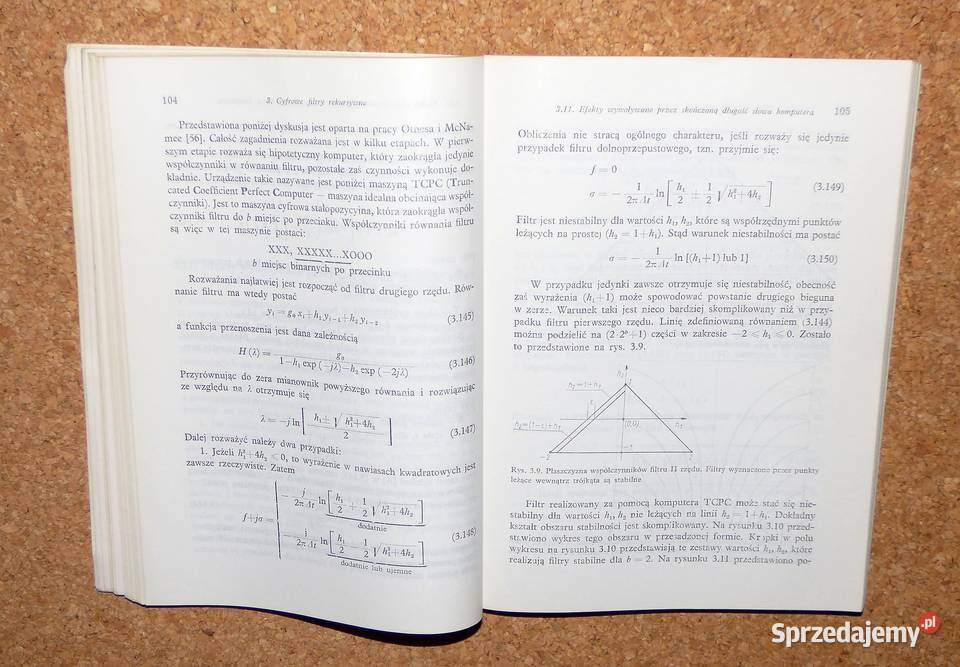 104
3. Cyfrowe filtry rekursywne
Przedstawiona poniżej dyskusja jest oparta na pracy Otnesa i McNa-
mee [56]. Całość zagadnienia rozważana jest w kilku etapach. W pierw-
szym etapie rozważa się hipotetyczny komputer, który zaokrągla jedynie
współczynniki w równaniu filtru, pozostałe zaś czynności wykonuje do-
kładnie. Urządzenie takie nazywane jest poniżej maszyną TCPC (Trun-
cated Coefficient Perfect Computer — maszyna idealna obcinająca współ-
czynniki). Jest to maszyna cyfrowa stałopozycyjna, która zaokrągla współ-
czynniki filtru do b miejsc po przecinku. Współczynniki równania filtru
są więc w tej maszynie postaci:
XXX, XXXXX...XOOO
b miejsc binarnych po przecinku
Rozważania najłatwiej jest rozpocząć od filtru drugiego rzędu. Rów-
nanie filtru ma wtedy postać
yᵢ = g₀xᵢ+h₁yᵢ₋₁+h₂yᵢ₋₂ (3.145)
a funkcja przenoszenia jest dana zależnością
H(λ) = g₀ / 1−h₁ exp(−jλ)−h₂ exp(−2jλ) (3.146)
Przyrównując do zera mianownik powyższego równania i rozwiązując
ze względu na λ otrzymuje się
λ = −j ln [ h₁ ± √h₁²+4h₂ / 2 ] (3.147)
Dalej rozważyć należy dwa przypadki:
1. Jeżeli h₁²+4h₂ ⩽ 0, to wyrażenie w nawiasach kwadratowych jest
zawsze rzeczywiste. Zatem
− j / 2π Δt ln [ h₁ / 2 + 1 / 2 √h₁²+4h₂ ]
dodatnie
f+jσ = (3.148)
− j / 2π Δt ln [ h₁ / 2 − 1 / 2 √h₁²+4h₂ ]
dodatnie lub ujemne
3.11. Efekty wywoływane przez skończoną długość słowa komputera
105
Obliczenia nie stracą ogólnego charakteru, jeśli rozważy się jedynie
przypadek filtru dolnoprzepustowego, tzn. przyjmie się:
f = 0
σ = − 1 / 2π Δt ln [ h₁ / 2 ± 1 / 2 √h₁²+4h₂ ] (3.149)
Filtr jest niestabilny dla wartości h₁, h₂, które są współrzędnymi punktów
leżących na prostej (h₂ = 1+h₁). Stąd warunek niestabilności ma postać
σ = − 1 / 2π Δt ln [(h₁+1) lub 1] (3.150)
W przypadku jedynki zawsze otrzymuje się niestabilność, obecność
zaś wyrażenia (h₁+1) może spowodować powstanie drugiego bieguna
w zerze. Warunek taki jest nieco bardziej skomplikowany niż w przy-
padku filtru pierwszego rzędu. Linię zdefiniowaną równaniem (3.144)
można podzielić na (2·2ᵇ+1) części w zakresie −2 ⩽ h₁ ⩽ 0. Zostało
to przedstawione na rys. 3.9.
h₂
h₂=1+h₁
1
ε
(0,0)
h₁
h₂=(1−ε)+h₁
−2
−1
2
Rys. 3.9. Płaszczyzna współczynników filtru II rzędu. Filtry wyznaczone przez punkty
leżące wewnątrz trójkąta są stabilne
Filtr realizowany za pomocą komputera TCPC może stać się nie-
stabilny dla wartości h₁, h₂ nie leżących na linii h₂ = 1+h₁. Dokładny
kształt obszaru stabilności jest skomplikowany. Na rysunku 3.10 przed-
stawiono wykres tego obszaru w przesadzonej formie. Kropki w polu
wykresu na rysunku 3.10 przedstawiają te zestawy wartości h₁, h₂, które
realizują filtry stabilne dla b = 2. Na rysunku 3.11 przedstawiono po-
Sprzedajemy.pl